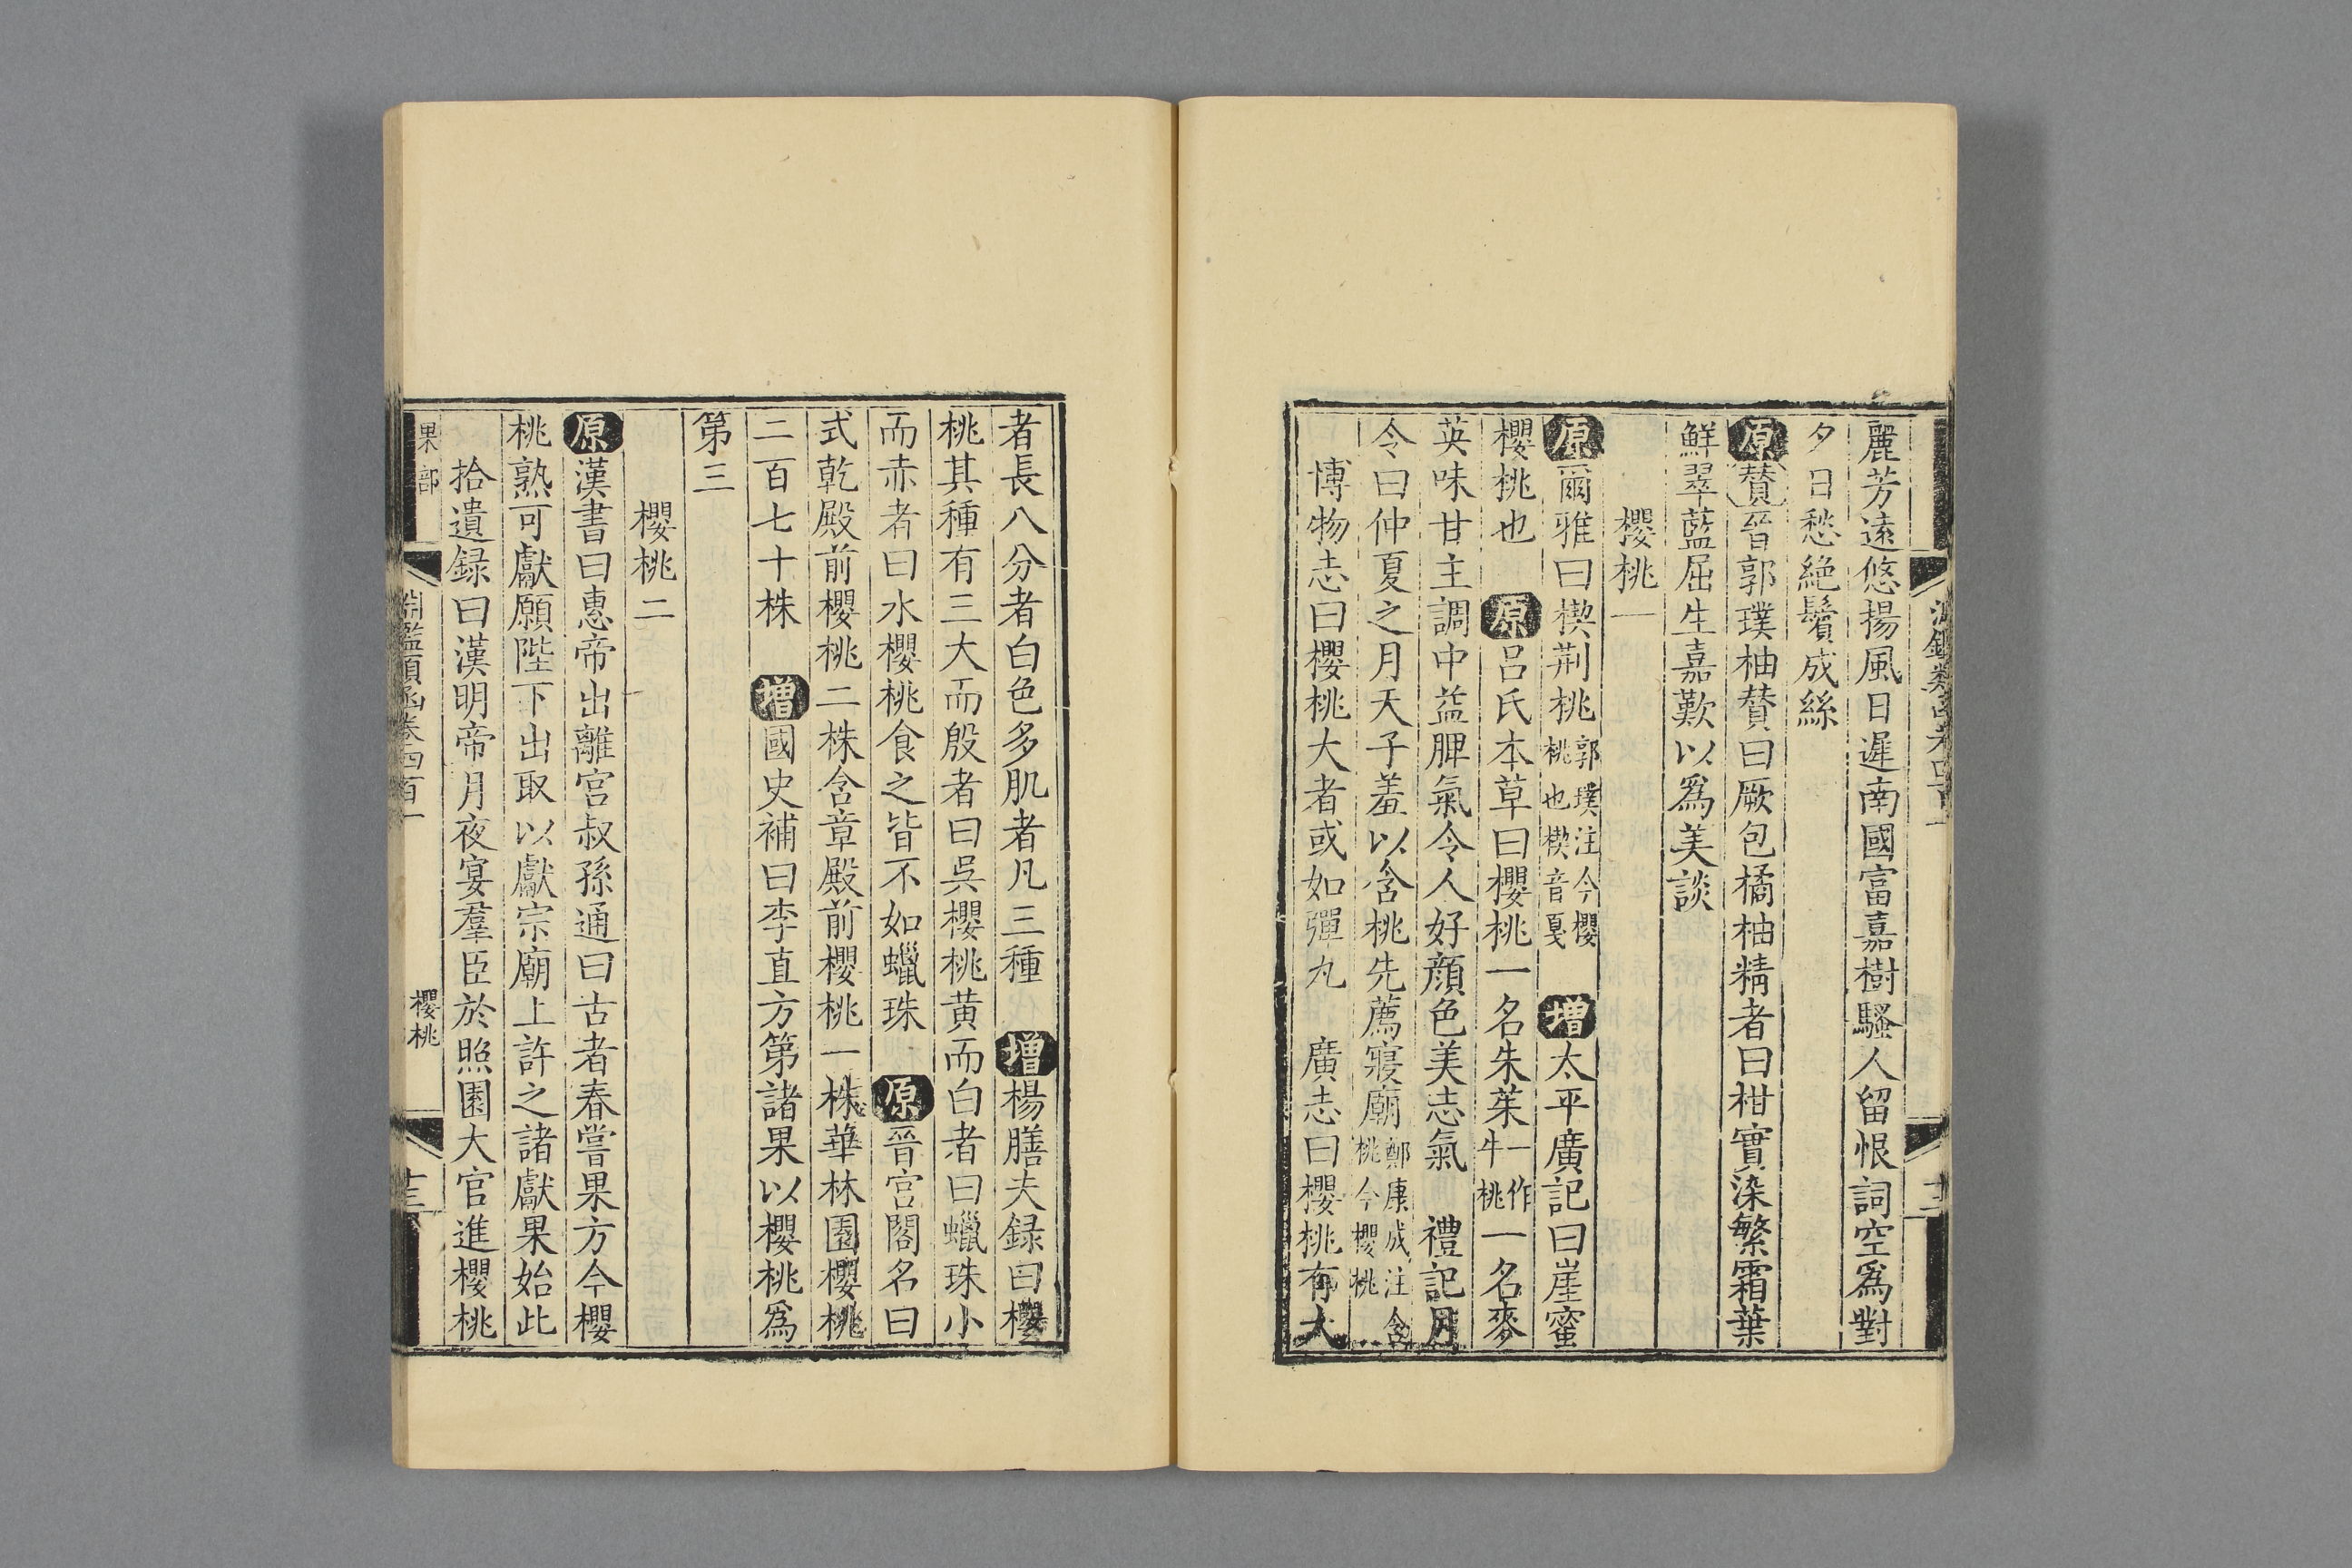 麗芳遠悠揚風日遲南國富嘉樹騷人留恨詞空爲對
夕日愁絶鬢成絲
原贊晉郭璞柚贊曰厥包橘柚精者曰柑實染繁霜葉
鮮翠藍屈生嘉歎以爲美談
櫻桃一
原爾雅曰楔荆桃郭璞注今櫻桃也楔音戛 增太平廣記曰崖蜜
櫻桃也 原呂氏本草曰櫻桃一名朱茱一作牛桃一名麥
英味甘主調中益脾氣令人好顔色美志氣 禮記月
令曰仲夏之月天子羞以含桃先薦寢廟鄭康成注含桃今櫻桃
博物志曰櫻桃大者或如彈丸 廣志曰櫻桃有大
者長八分者白色多肌者凡三種 增楊膳夫録曰櫻
桃其種有三大而殷者曰吳櫻桃黄而白者曰蠟珠小
而赤者曰水櫻桃食之皆不如蠟珠 原晉宫閣名曰
式乾殿前櫻桃二株含章殿前櫻桃一株華林園櫻桃
二百七十株 增國史補曰李直方第諸果以櫻桃爲
第三
櫻桃二
原漢書曰惠帝出離宫叔孫通曰古者春嘗果方今櫻
桃熟可獻願陛下出取以獻宗廟上許之諸獻果始此
拾遺録曰漢明帝月夜宴羣臣於照園大官進櫻桃
果部
淵鑑類函卷四百一
櫻桃
十三